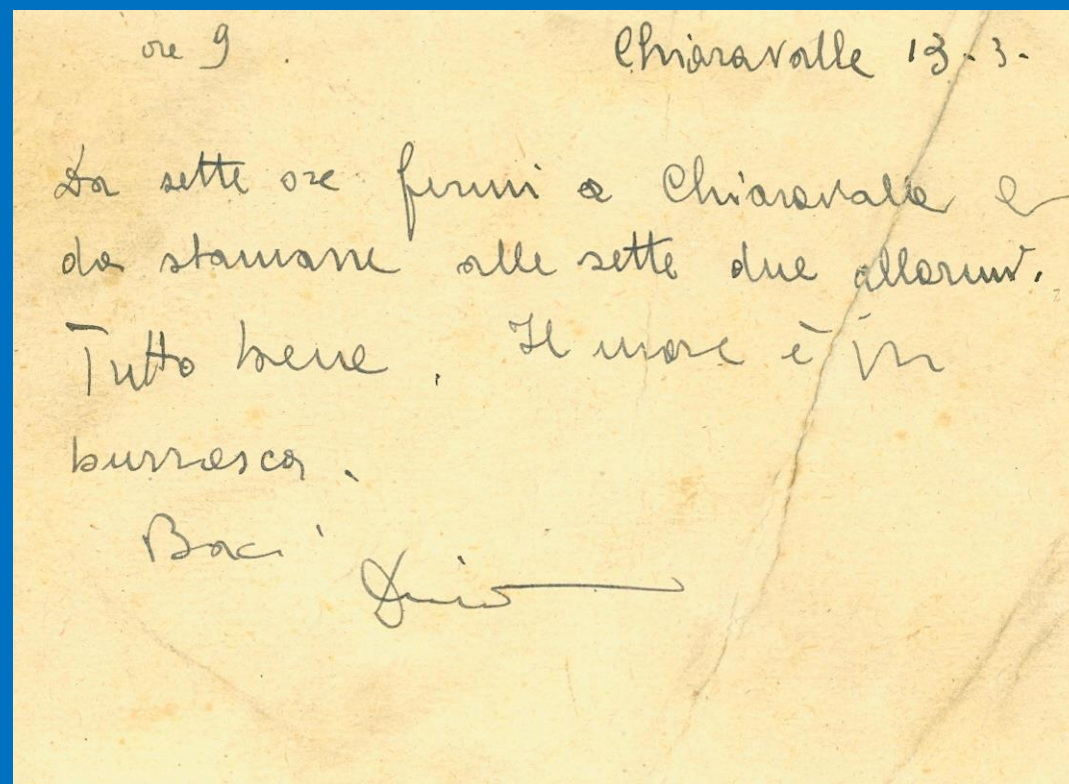 ore 9. Chiaravalle 13.3.
Da sette ore fermi a Chiaravalle e
da stamane alle sette due allarmi.
Tutto bene. Il mare è in
burrasca.
Baci